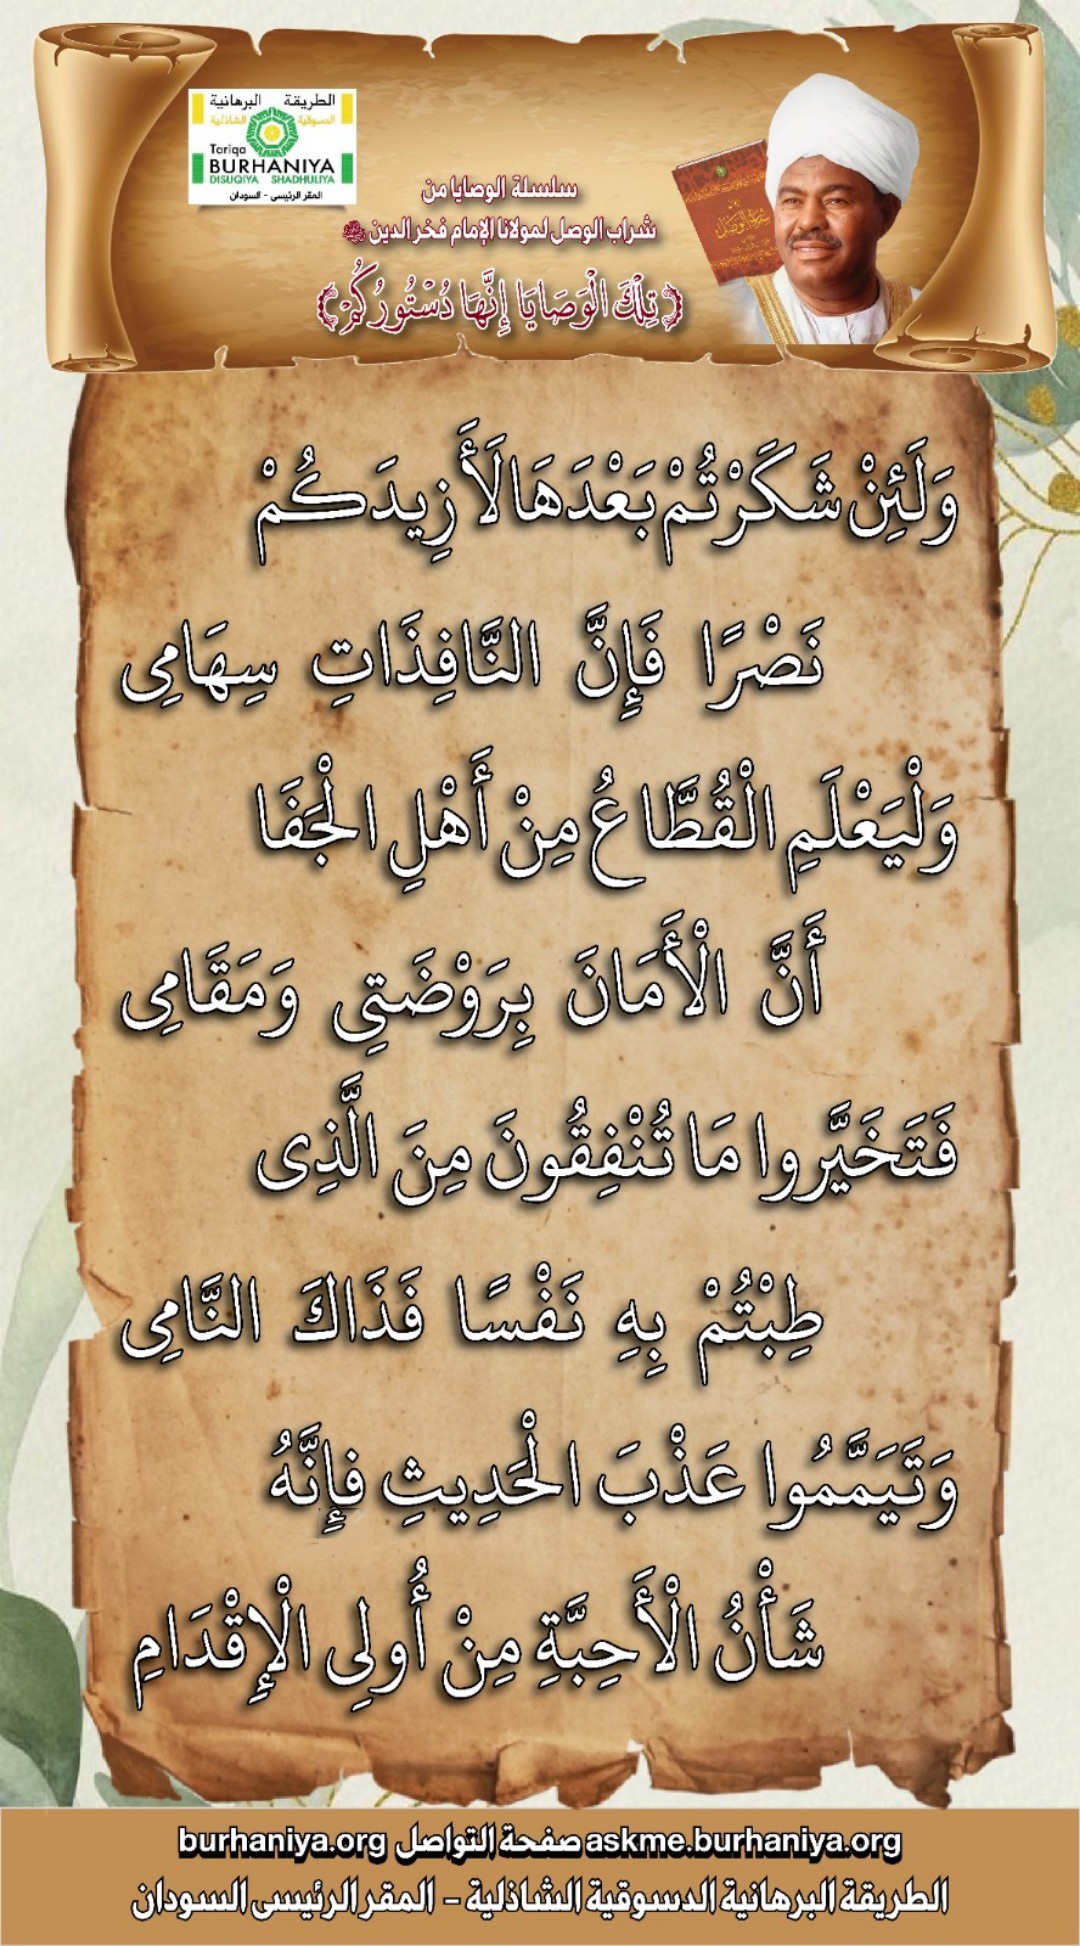 الطريقة البرهانية
الدسوقية الشاذلية
Tariqa
BURHANIYA
DISUQIYA SHADHULIYA
المقر الرئيسي - السودان
سلسلة الوصايا من
شراب الوصل لمولانا الإمام فخر الدين
﴿تِلْكَ الْوَصَايَا إِنَّهَا دُسْتُورُكُمْ﴾
شراب الوصل
وَلَئِنْ شَكَرْتُمْ بَعْدَهَا لَأَزِيدَكُمْ
نَصْرًا فَإِنَّ النَّافِذَاتِ سِهَامِى
وَلْيَعْلَمِ الْقُطَّاعُ مِنْ أَهْلِ الْجَفَا
أَنَّ الْأَمَانَ بِرَوْضَتِى وَمَقَامِى
فَتَخَيَّرُوا مَا تُنْفِقُونَ مِنَ الَّذِى
طِبْتُمْ بِهِ نَفْسًا فَذَاكَ النَّامِى
وَتَيَمَّمُوا عَذْبَ الْحَدِيثِ فَإِنَّهُ
شَأْنُ الْأَحِبَّةِ مِنْ أُولِى الْإِقْدَامِ
askme.burhaniya.org صفحة التواصل burhaniya.org
الطريقة البرهانية الدسوقية الشاذلية - المقر الرئيسى السودان